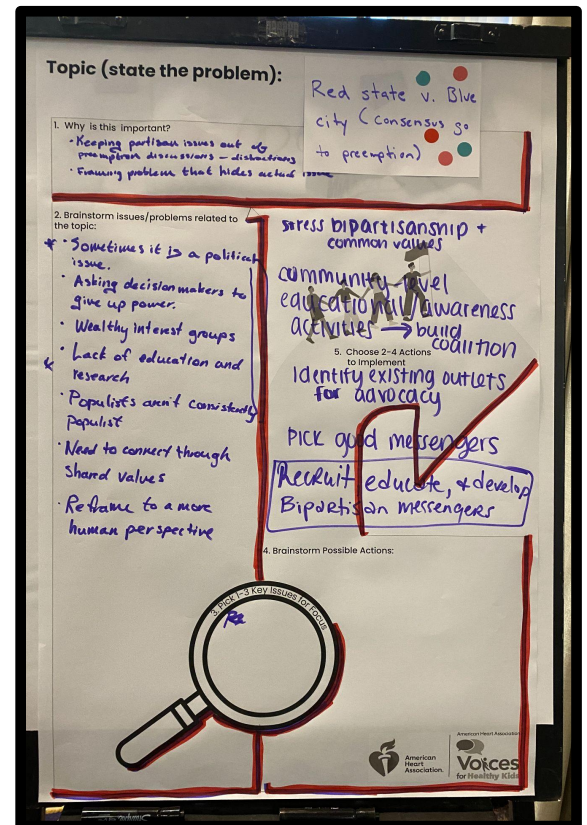 Topic (state the problem):
Red state v. Blue
city (consensus go
to preemption)
1. Why is this important?
• Keeping partisan issues out of
preemption discussions - distractions
• Framing problem that hides actual issue
2. Brainstorm issues/problems related to
the topic:
• Sometimes it is a political
issue.
• Asking decision makers to
give up power.
• Wealthy interest groups
• Lack of education and
research
• Populists aren't consistently
populist
• Need to connect through
shared values
• Reframe to a more
human perspective
stress bipartisanship +
common values
community level
educational awareness
activities → build
coalition
5. Choose 2-4 Actions
to Implement
Identify existing outlets
for advocacy
PICK good messengers
Recruit educate, + develop
Bipartisan messengers
4. Brainstorm Possible Actions:
3. Pick 1-3 Key Issues for Focus
Re
American
Heart
Association.
American Heart Association
Voices
for Healthy Kids